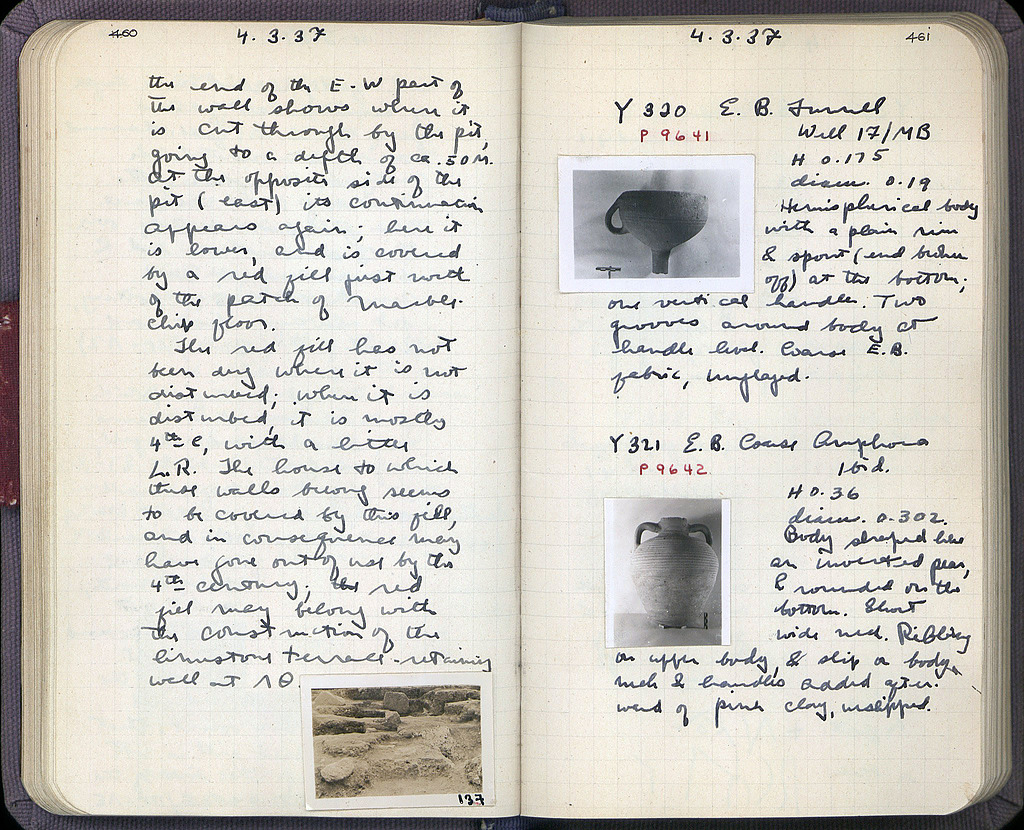 460
4.3.37
the end of the E-W part of
the wall shows where it
is cut through by the pit,
going to a depth of ca. .50 M.
At the opposite side of the
pit (east) its continuation
appears again; here it
is lower, and is covered
by a red fill just north
of the patch of marble-
chip floor.
The red fill has not
been dug where it is not
disturbed; where it is
disturbed, it is mostly
4th c, with a little
L.R. The house to which
these walls belong seems
to be covered by this fill,
and in consequence may
have gone out of use by the
4th century; the red
fill may belong with
the construction of the
limestone terrace-retaining
wall at ΛΘ
137
4.3.37
461
Y 320 E. B. Funnel
P 9641
Well 17/MB
H 0.175
diam. 0.19
Hemispherical body
with a plain rim
& spout (end broken
off) at the bottom;
one vertical handle. Two
grooves around body at
handle level. Coarse E.B.
fabric, unglazed.
Y 321 E. B. Coarse Amphora
P 9642
Ibid.
H 0.36
diam. 0.302
Body shaped like
an inverted pear,
& rounded on the
bottom. Short
wide neck. Ribbing
on upper body, & slip on body,
neck & handles added after-
ward of pink clay, unslipped.